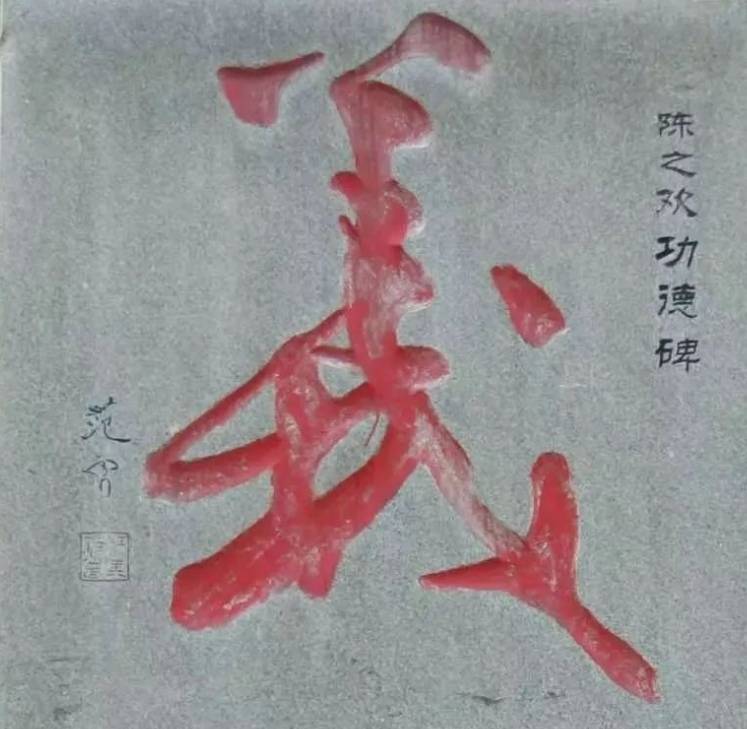 陈之欢功德碑
義
范曾